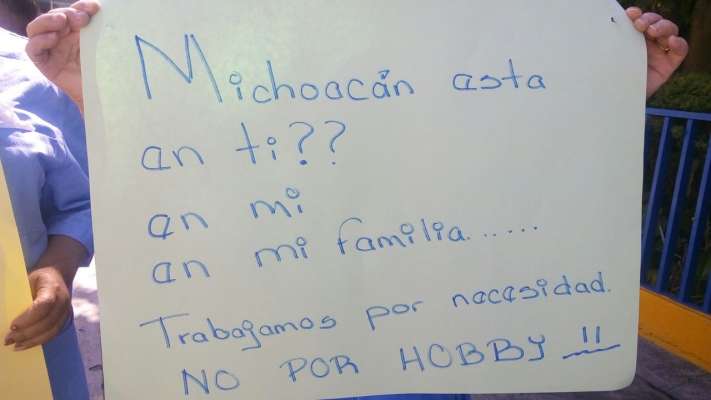 Michoacán esta
en ti??
en mi
en mi familia......
Trabajamos por necesidad.
NO POR HOBBY !!